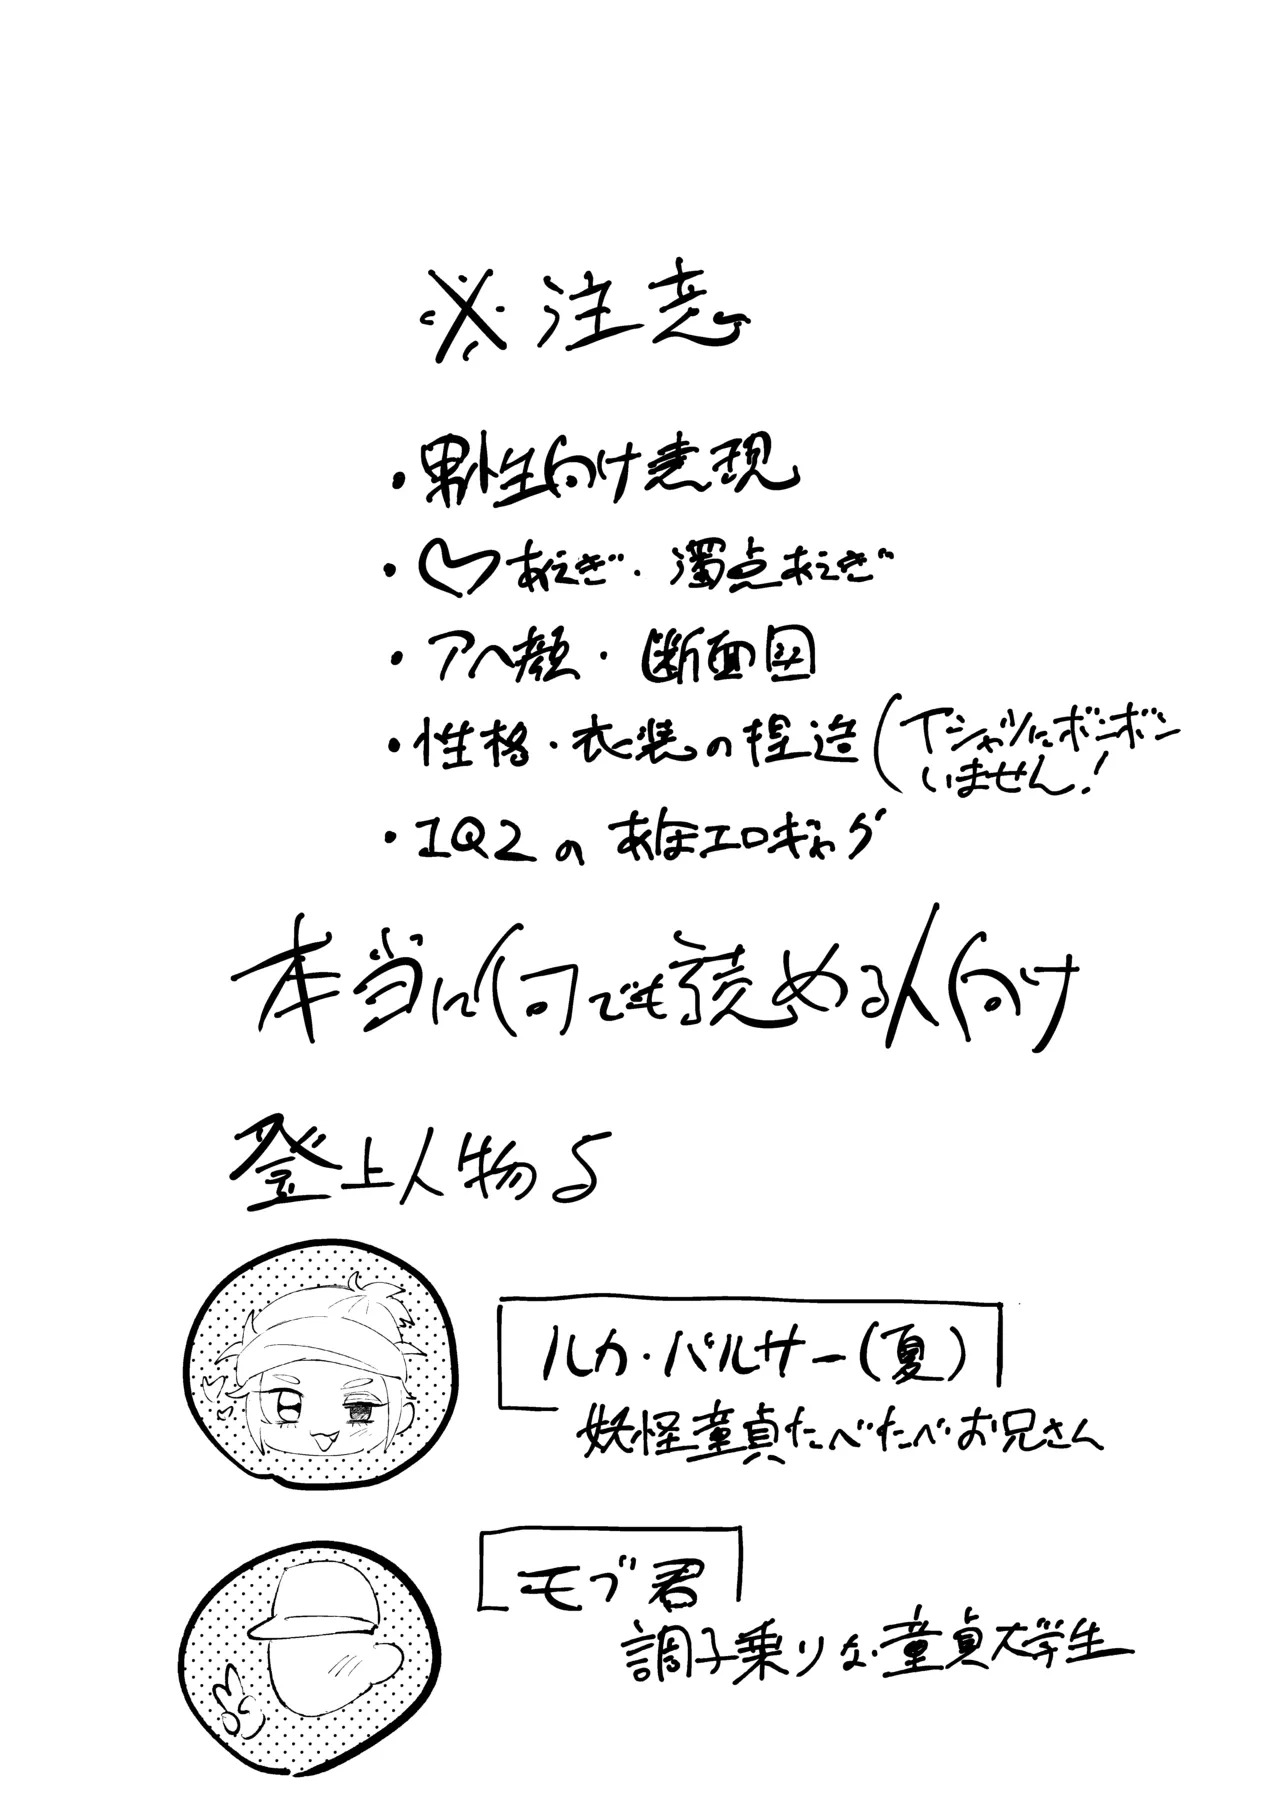 ※注意
・男性向け表現
・♡あえぎ・濁点あえぎ
・アヘ顔・断面図
・性格・衣装の捏造(Tシャツにボンボン
いません!
・IQ2のあほエロギャグ
本当に何でも読める人向け
登上人物♪
ルカ・バルサー(夏)
妖怪童貞たべたべお兄さん
モブ君
調子乗りな童貞大学生